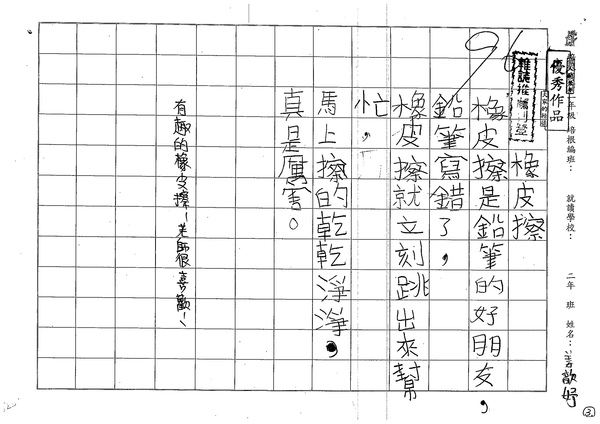 優秀作品
雜誌推薦刊登
年級 培根編班：
就讀學校：
二年 班 姓名：
歆妤
96
橡皮擦
橡皮擦是鉛筆的好朋友，
鉛筆寫錯了，
橡皮擦就立刻跳出來幫
忙，
馬上擦的乾乾淨淨，
真是厲害。
有趣的橡皮擦！老師很喜歡！
3